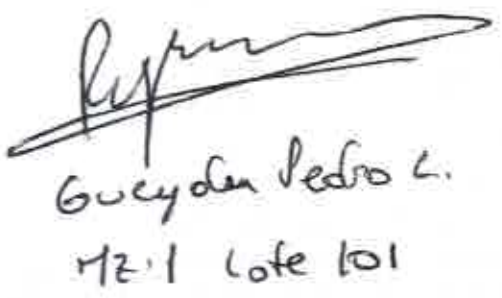 Gueydan Pedro L.
Mz. 1 Lote 101